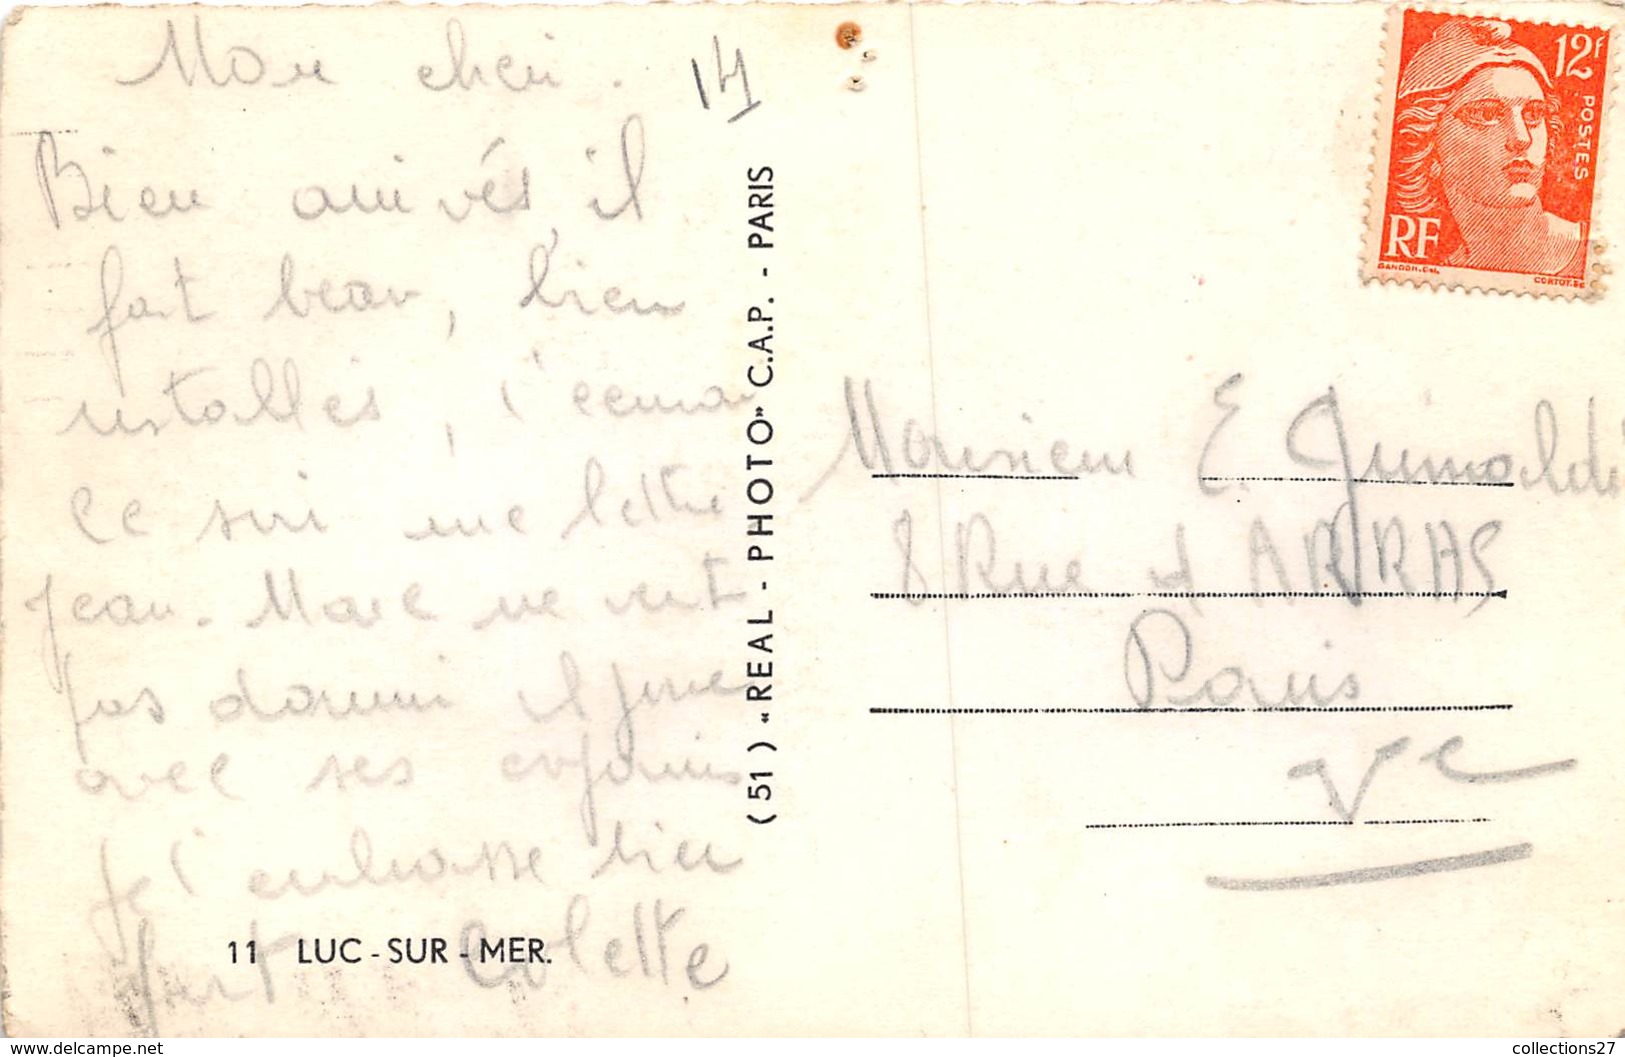 Mon cheri.
14
Bien arrivés, il
fait beau, bien
installés, t'ecrirai
ce soir une lettre
Jean. Marc ne veut
pas dormir il joue
avec ses copains
Je t'embrasse bien
fort Colette
11 LUC-SUR-MER.
(51) «REAL-PHOTO» C.A.P. - PARIS
12f
POSTES
RF
GANDON.DEL
CORTOT.SC
Monsieur E. Grimaldi
8 Rue d'ARRAS
Paris
Ve
collections27